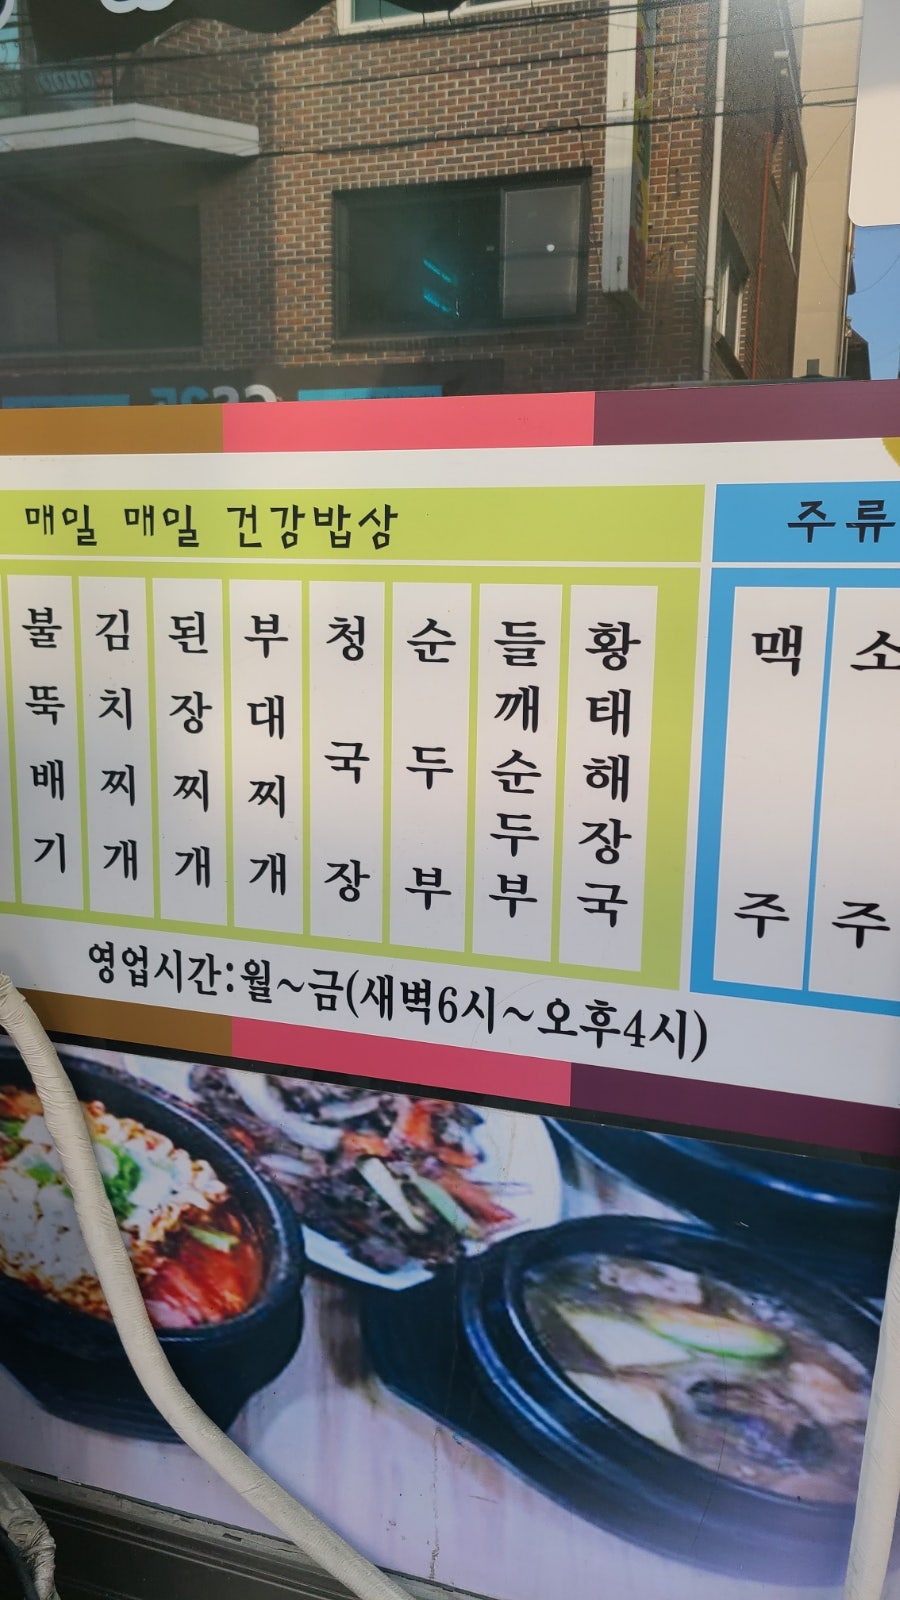 매일 매일 건강밥상
불뚝배기
김치찌개
된장찌개
부대찌개
청국장
순두부
들깨순두부
황태해장국
주류
맥주
소주
영업시간:월~금(새벽6시~오후4시)